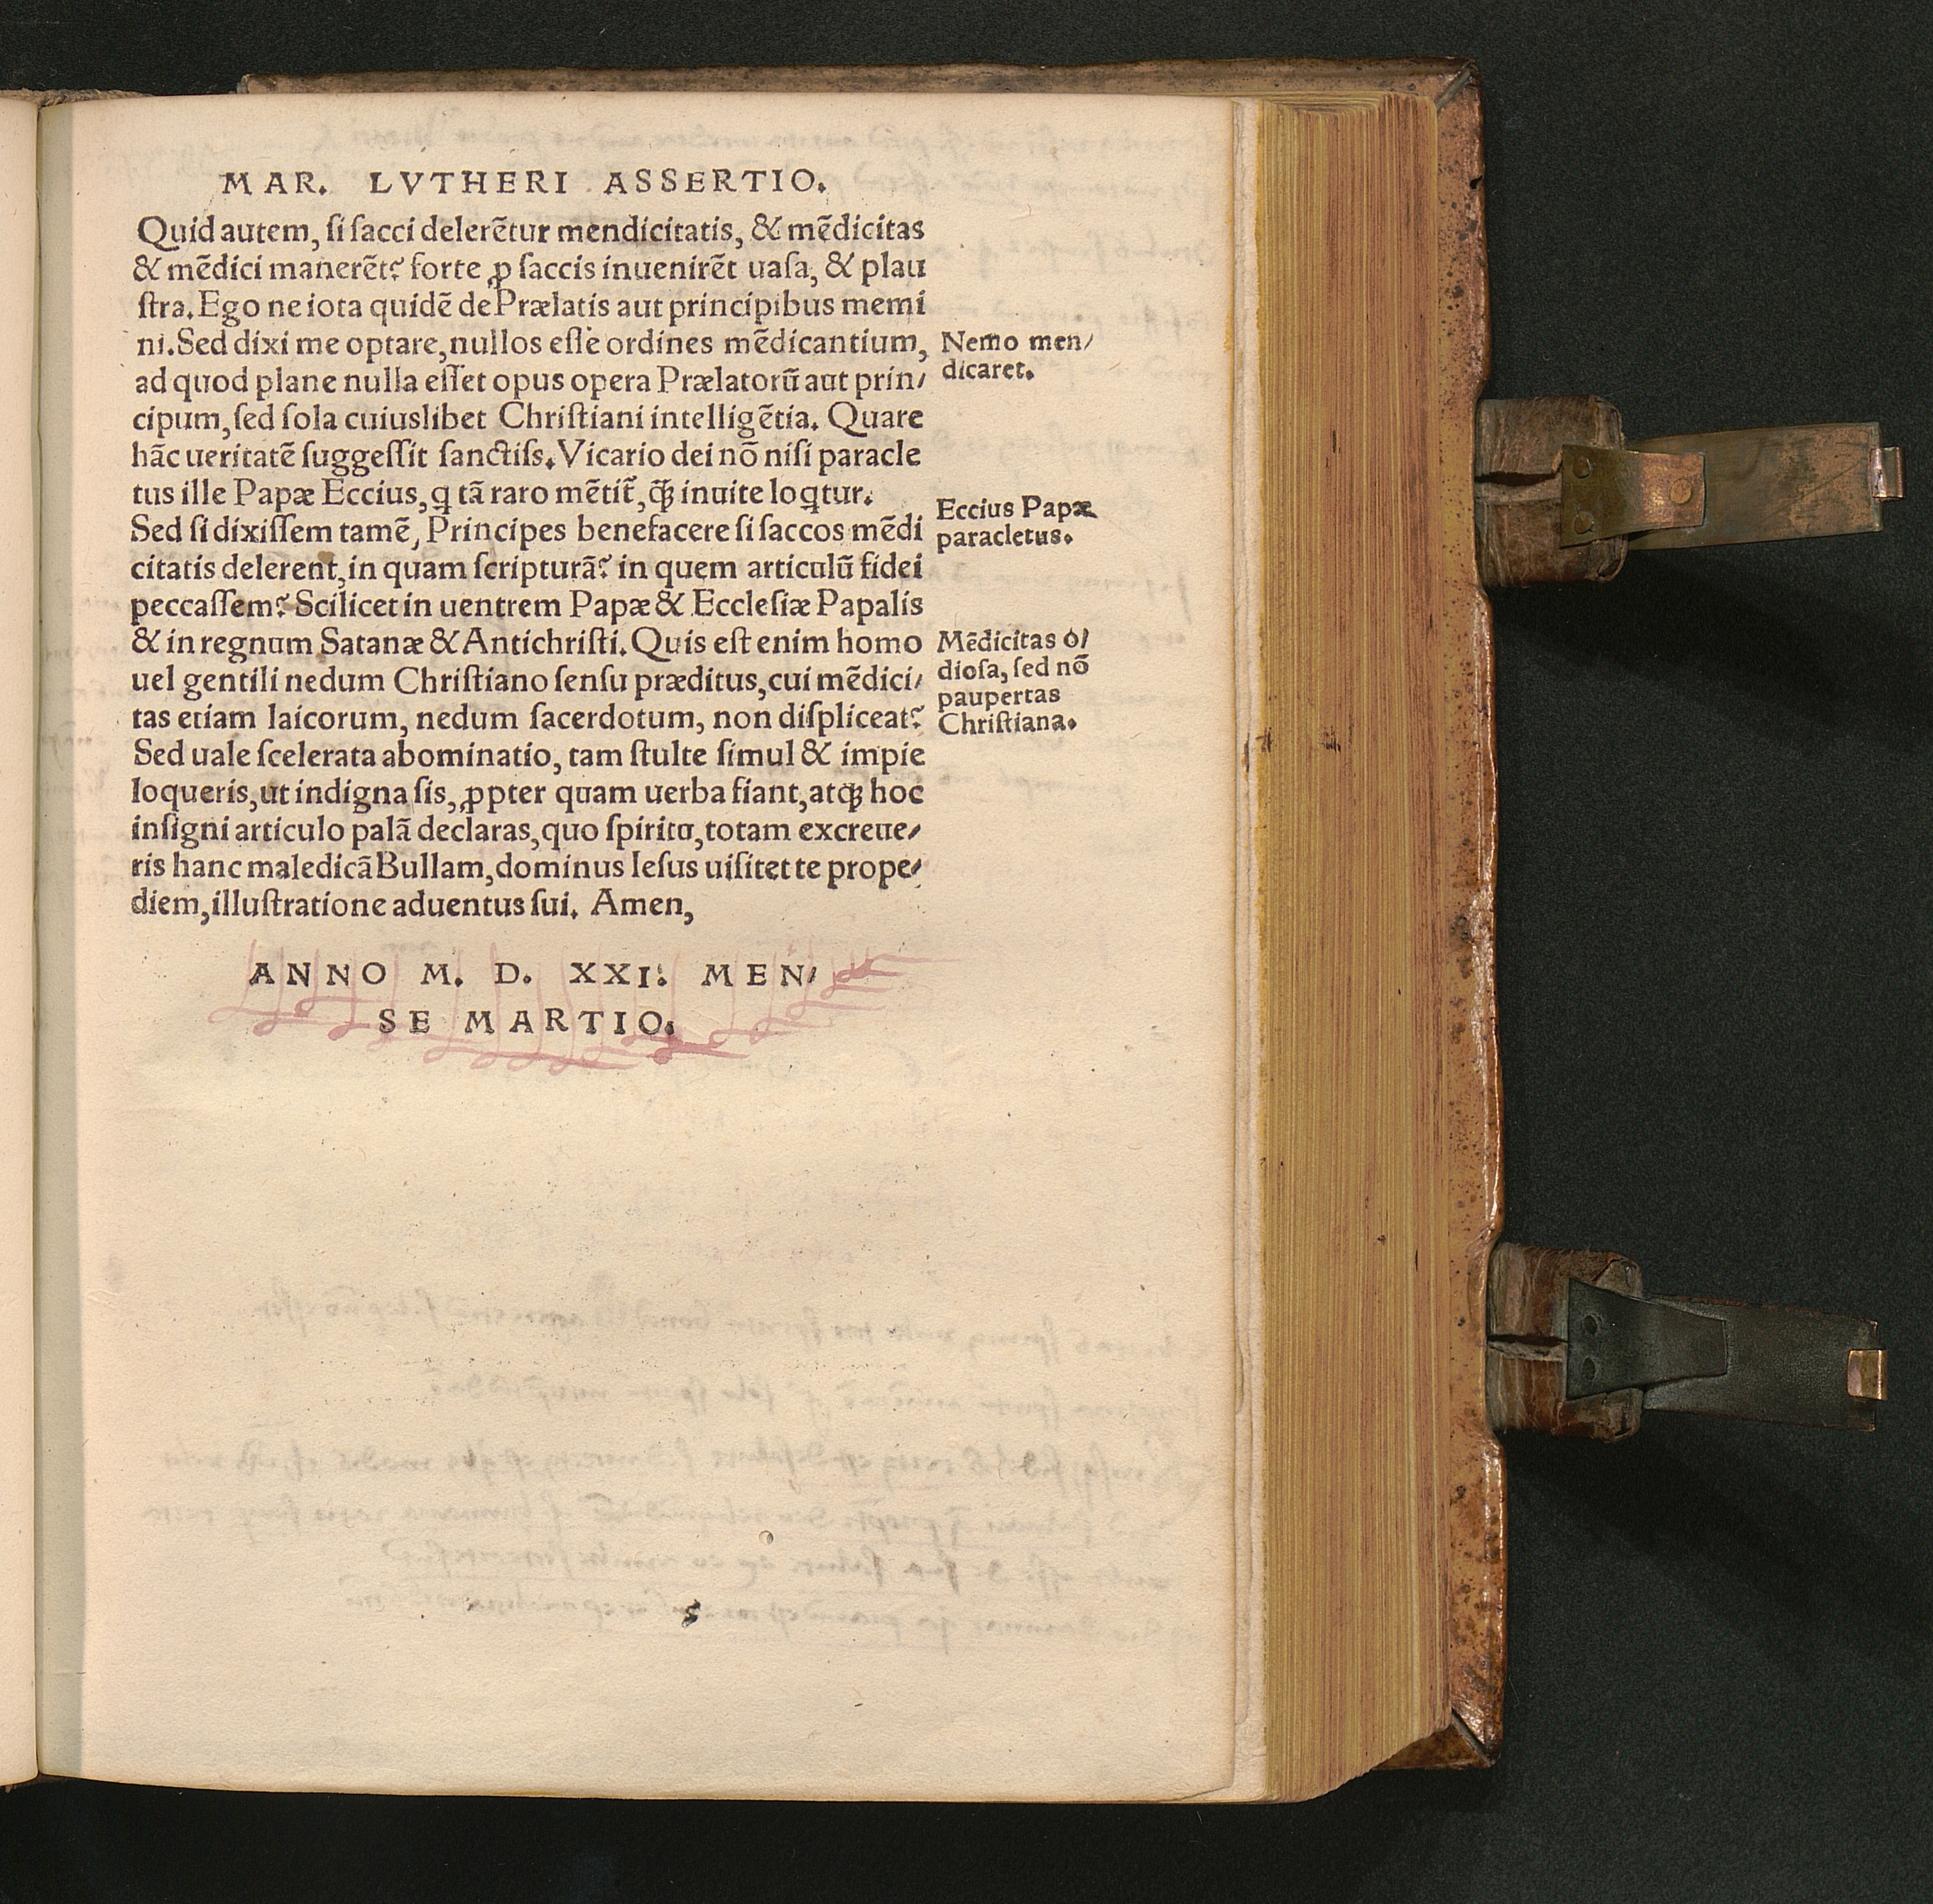 MAR. LVTHERI ASSERTIO.
Quid autem, ſi ſacci delerẽtur mendicitatis, & mẽdicitas
& mẽdici manerẽt? forte ꝓ ſaccis inuenirẽt uaſa, & plau
ſtra. Ego ne iota quidẽ de Prælatis aut principibus memi
ni. Sed dixi me optare, nullos eſſe ordines mẽdicantium,
ad quod plane nulla eſſet opus opera Prælatorũ aut prin/
cipum, ſed ſola cuiuslibet Chriſtiani intelligẽtia. Quare
hãc ueritatẽ ſuggeſſit ſanctiſs. Vicario dei nõ niſi paracle
tus ille Papæ Eccius, q tã raro mẽtit̃, ꝙ̃ inuite loqtur.
Sed ſi dixiſſem tamẽ, Principes benefacere ſi ſaccos mẽdi
citatis delerent, in quam ſcripturã? in quem articulũ fidei
peccaſſem? Scilicet in uentrem Papæ & Eccleſiæ Papalis
& in regnum Satanæ & Antichriſti. Quis eſt enim homo
uel gentili nedum Chriſtiano ſenſu præditus, cui mẽdici/
tas etiam laicorum, nedum ſacerdotum, non diſpliceat?
Sed uale ſcelerata abominatio, tam ſtulte ſimul & impie
loqueris, ut indigna ſis, ꝓpter quam uerba fiant, atqꝫ hoc
inſigni articulo palã declaras, quo ſpiritu, totam excreue/
ris hanc maledicã Bullam, dominus Ieſus uiſitet te prope/
diem, illuſtratione aduentus ſui. Amen,
ANNO M. D. XXI. MEN/
SE MARTIO.
Nemo men/
dicaret.
Eccius Papæ
paracletus.
Mẽdicitas o/
dioſa, ſed nõ
paupertas
Chriſtiana.